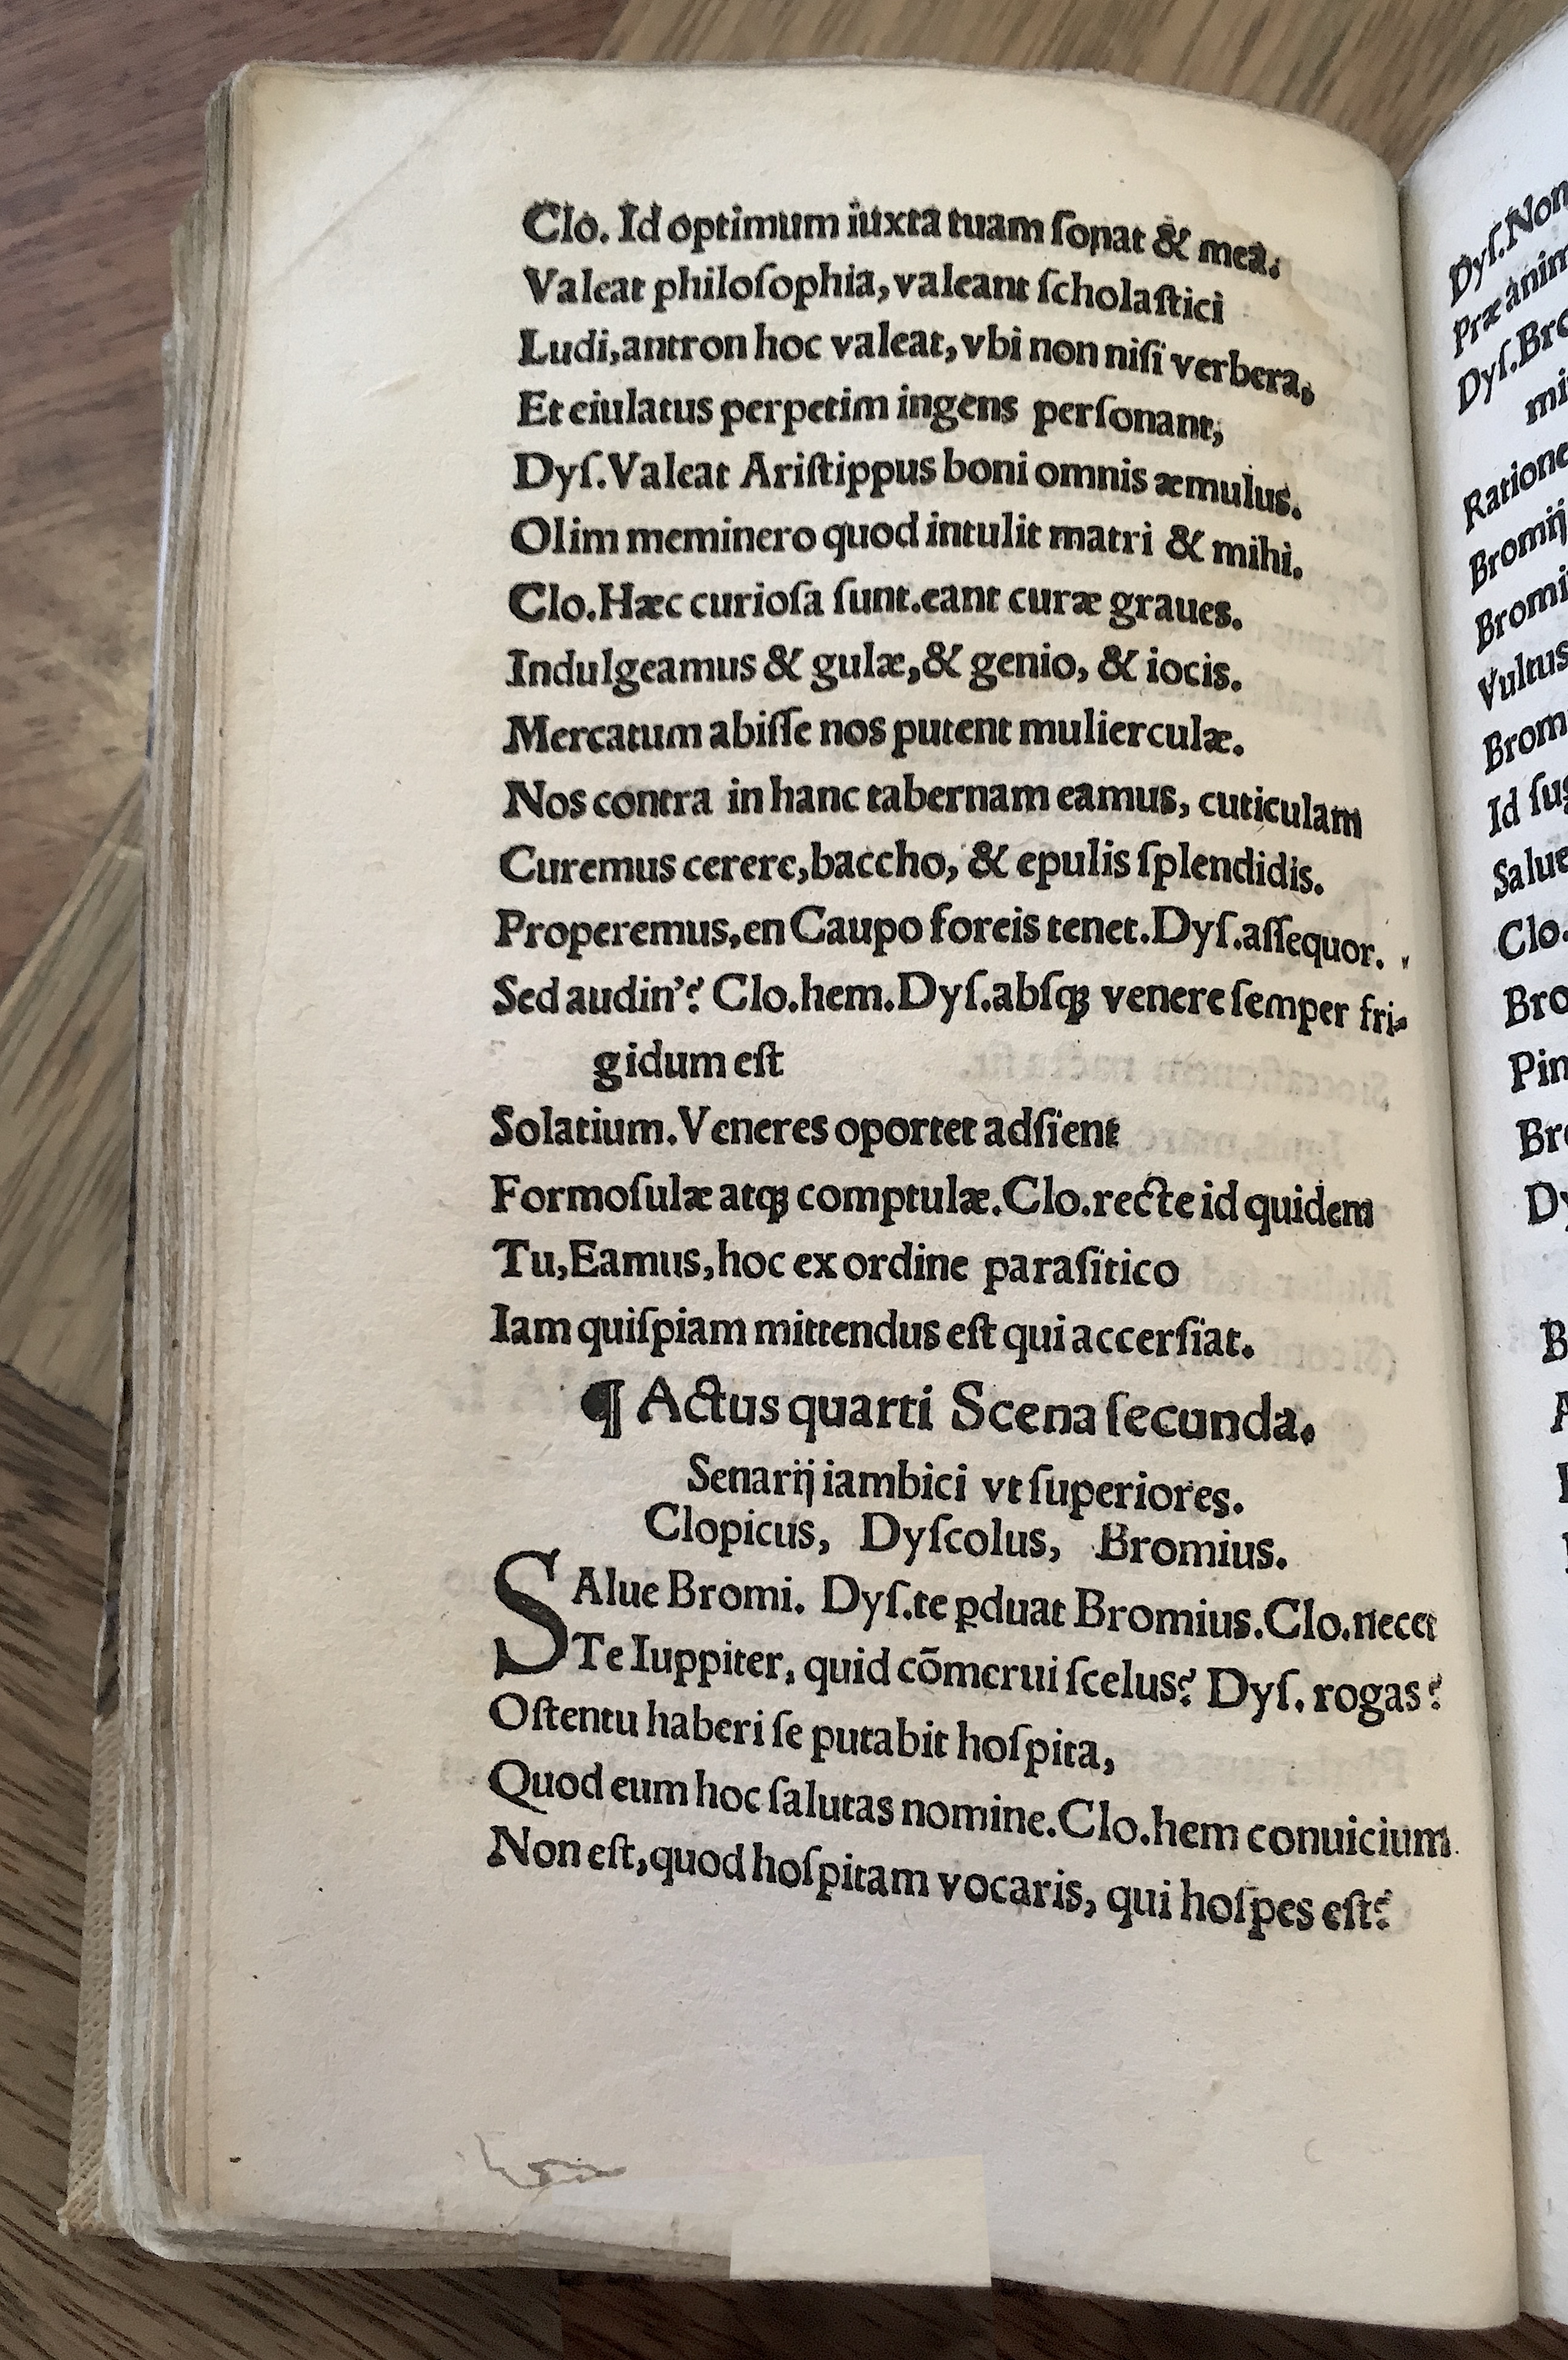 Clo. Id optimum iuxta tuam ſonat & mea.
Valeat philoſophia, valeant ſcholaſtici
Ludi, antron hoc valeat, vbi non niſi verbera,
Et eiulatus perpetim ingens perſonant,
Dyſ. Valeat Ariſtippus boni omnis æmulus.
Olim meminero quod intulit matri & mihi.
Clo. Hæc curioſa ſunt. eant curæ graues.
Indulgeamus & gulæ, & genio, & iocis.
Mercatum abiſſe nos putent mulierculæ.
Nos contra in hanc tabernam eamus, cuticulam
Curemus cerere, baccho, & epulis ſplendidis.
Properemus, en Caupo foreis tenet. Dyſ. aſſequor.
Sed audin'? Clo. hem. Dyſ. abſꝗ venere ſemper fri⸗
gidum eſt
Solatium. Veneres oportet adſient
Formoſulæ atꝗ comptulæ. Clo. recte id quidem
Tu, Eamus, hoc ex ordine paraſitico
Iam quiſpiam mittendus eſt qui accerſiat.
¶ Actus quarti Scena ſecunda.
Senarij iambici vt ſuperiores.
Clopicus, Dyſcolus, Bromius.
SAlue Bromi. Dyſ. te ꝑduat Bromius. Clo. necet
Te Iuppiter, quid cōmerui ſcelus? Dyſ. rogas?
Oſtentu haberi ſe putabit hoſpita,
Quod eum hoc ſalutas nomine. Clo. hem conuicium
Non eſt, quod hoſpitam vocaris, qui hoſpes eſt?
Dyſ. Non
Dyſ. Bro
mi
Vultus
Clo.